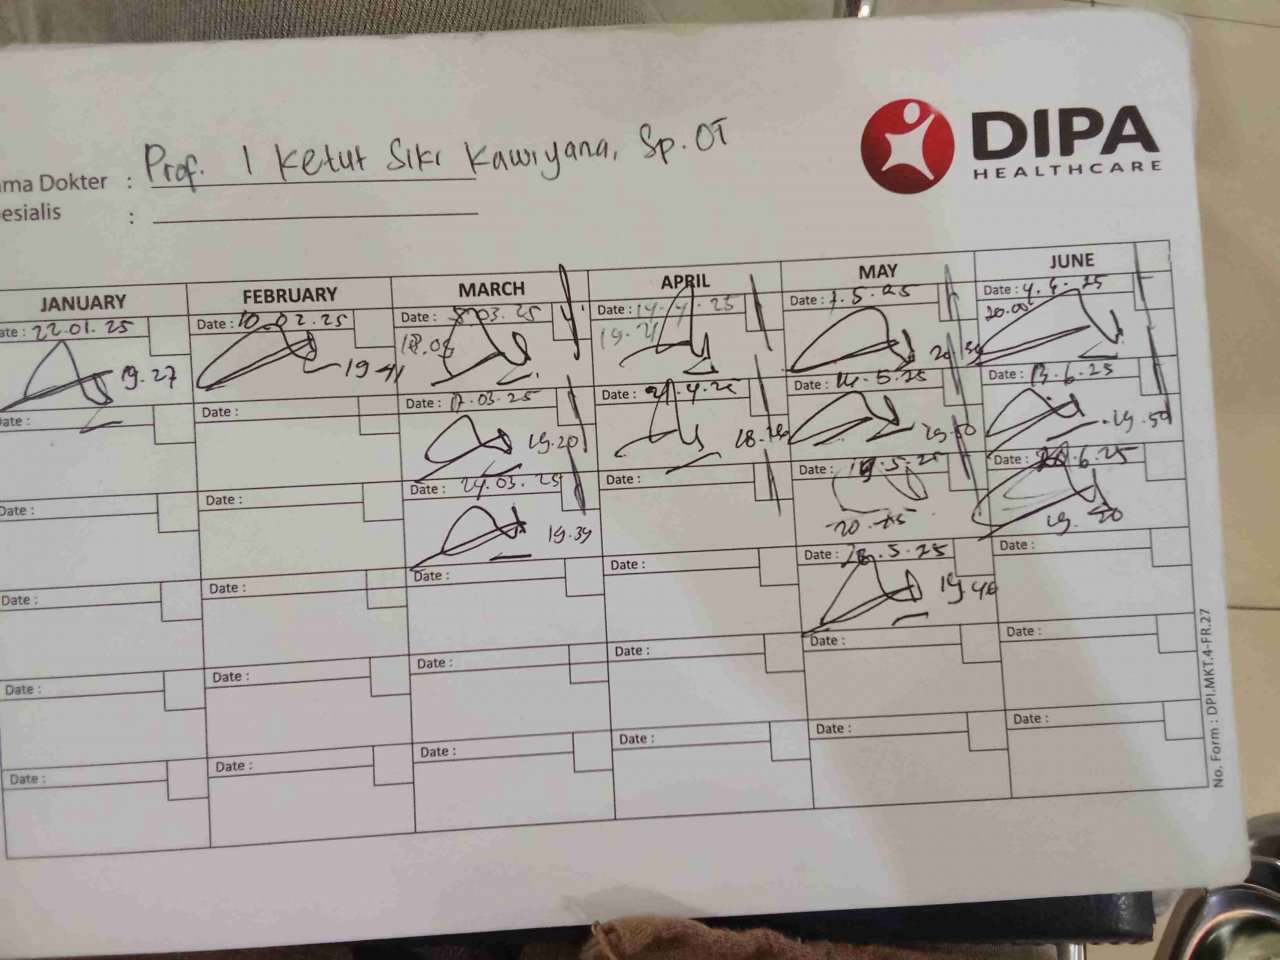 DIPA
HEALTHCARE
ama Dokter : Prof. I Ketut Siki Kawiyana, Sp.OT
esialis :
JANUARY FEBRUARY MARCH APRIL MAY JUNE
ate: 22.01.25 Date: 10.02.25 Date: 8.03.25 Date: 14.4.25 Date: 7.5.25 Date: 4.6.25
19.27 19.41 18.05 19.21 20.00
ate: Date: Date: 17.03.25 Date: 21.4.25 Date: 14.5.25 Date: 13.6.25
19.20 19.50 19.50
Date: Date: Date: 24.03.25 Date: Date: 19.5.25 Date: 20.6.25
19.39 20.15 19.20
Date: Date: Date: Date: Date: 26.5.25 Date:
19.40
Date: Date: Date: Date: Date: Date:
Date: Date: Date: Date: Date: Date:
No. Form : DPI.MKT.4-FR.27